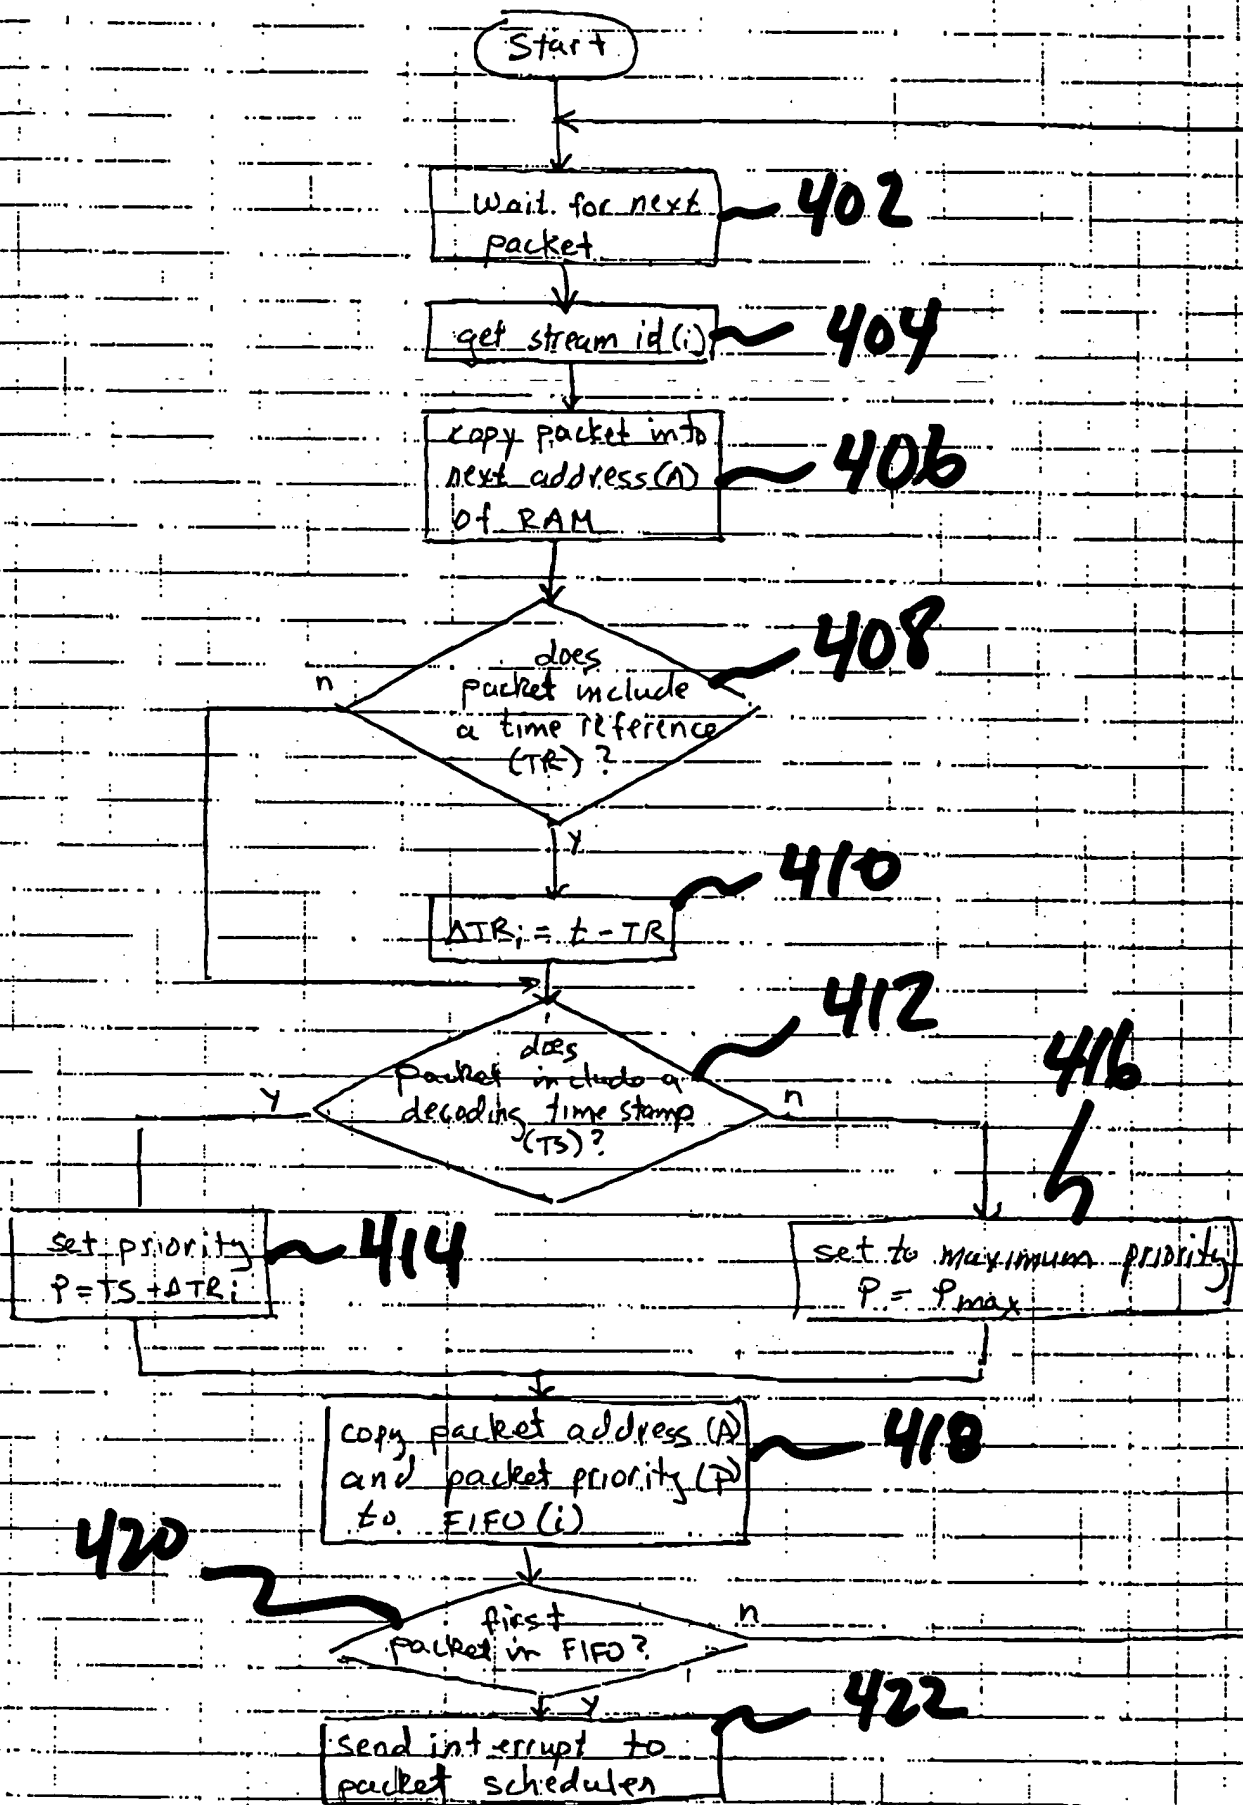 Start
Wait for next
packet
402
get stream id(i)
404
copy packet into
next address(A)
of RAM
406
does
packet include
a time reference
(TR)?
408
n
y
ΔTRi = t - TR
410
does
packet include a
decoding time stamp
(TS)?
412
y
n
416
set priority
P = TS + ΔTRi
414
set to maximum priority
P = Pmax
copy packet address (A)
and packet priority (P)
to FIFO (i)
418
420
first
packet in FIFO?
n
y
send interrupt to
packet scheduler
422